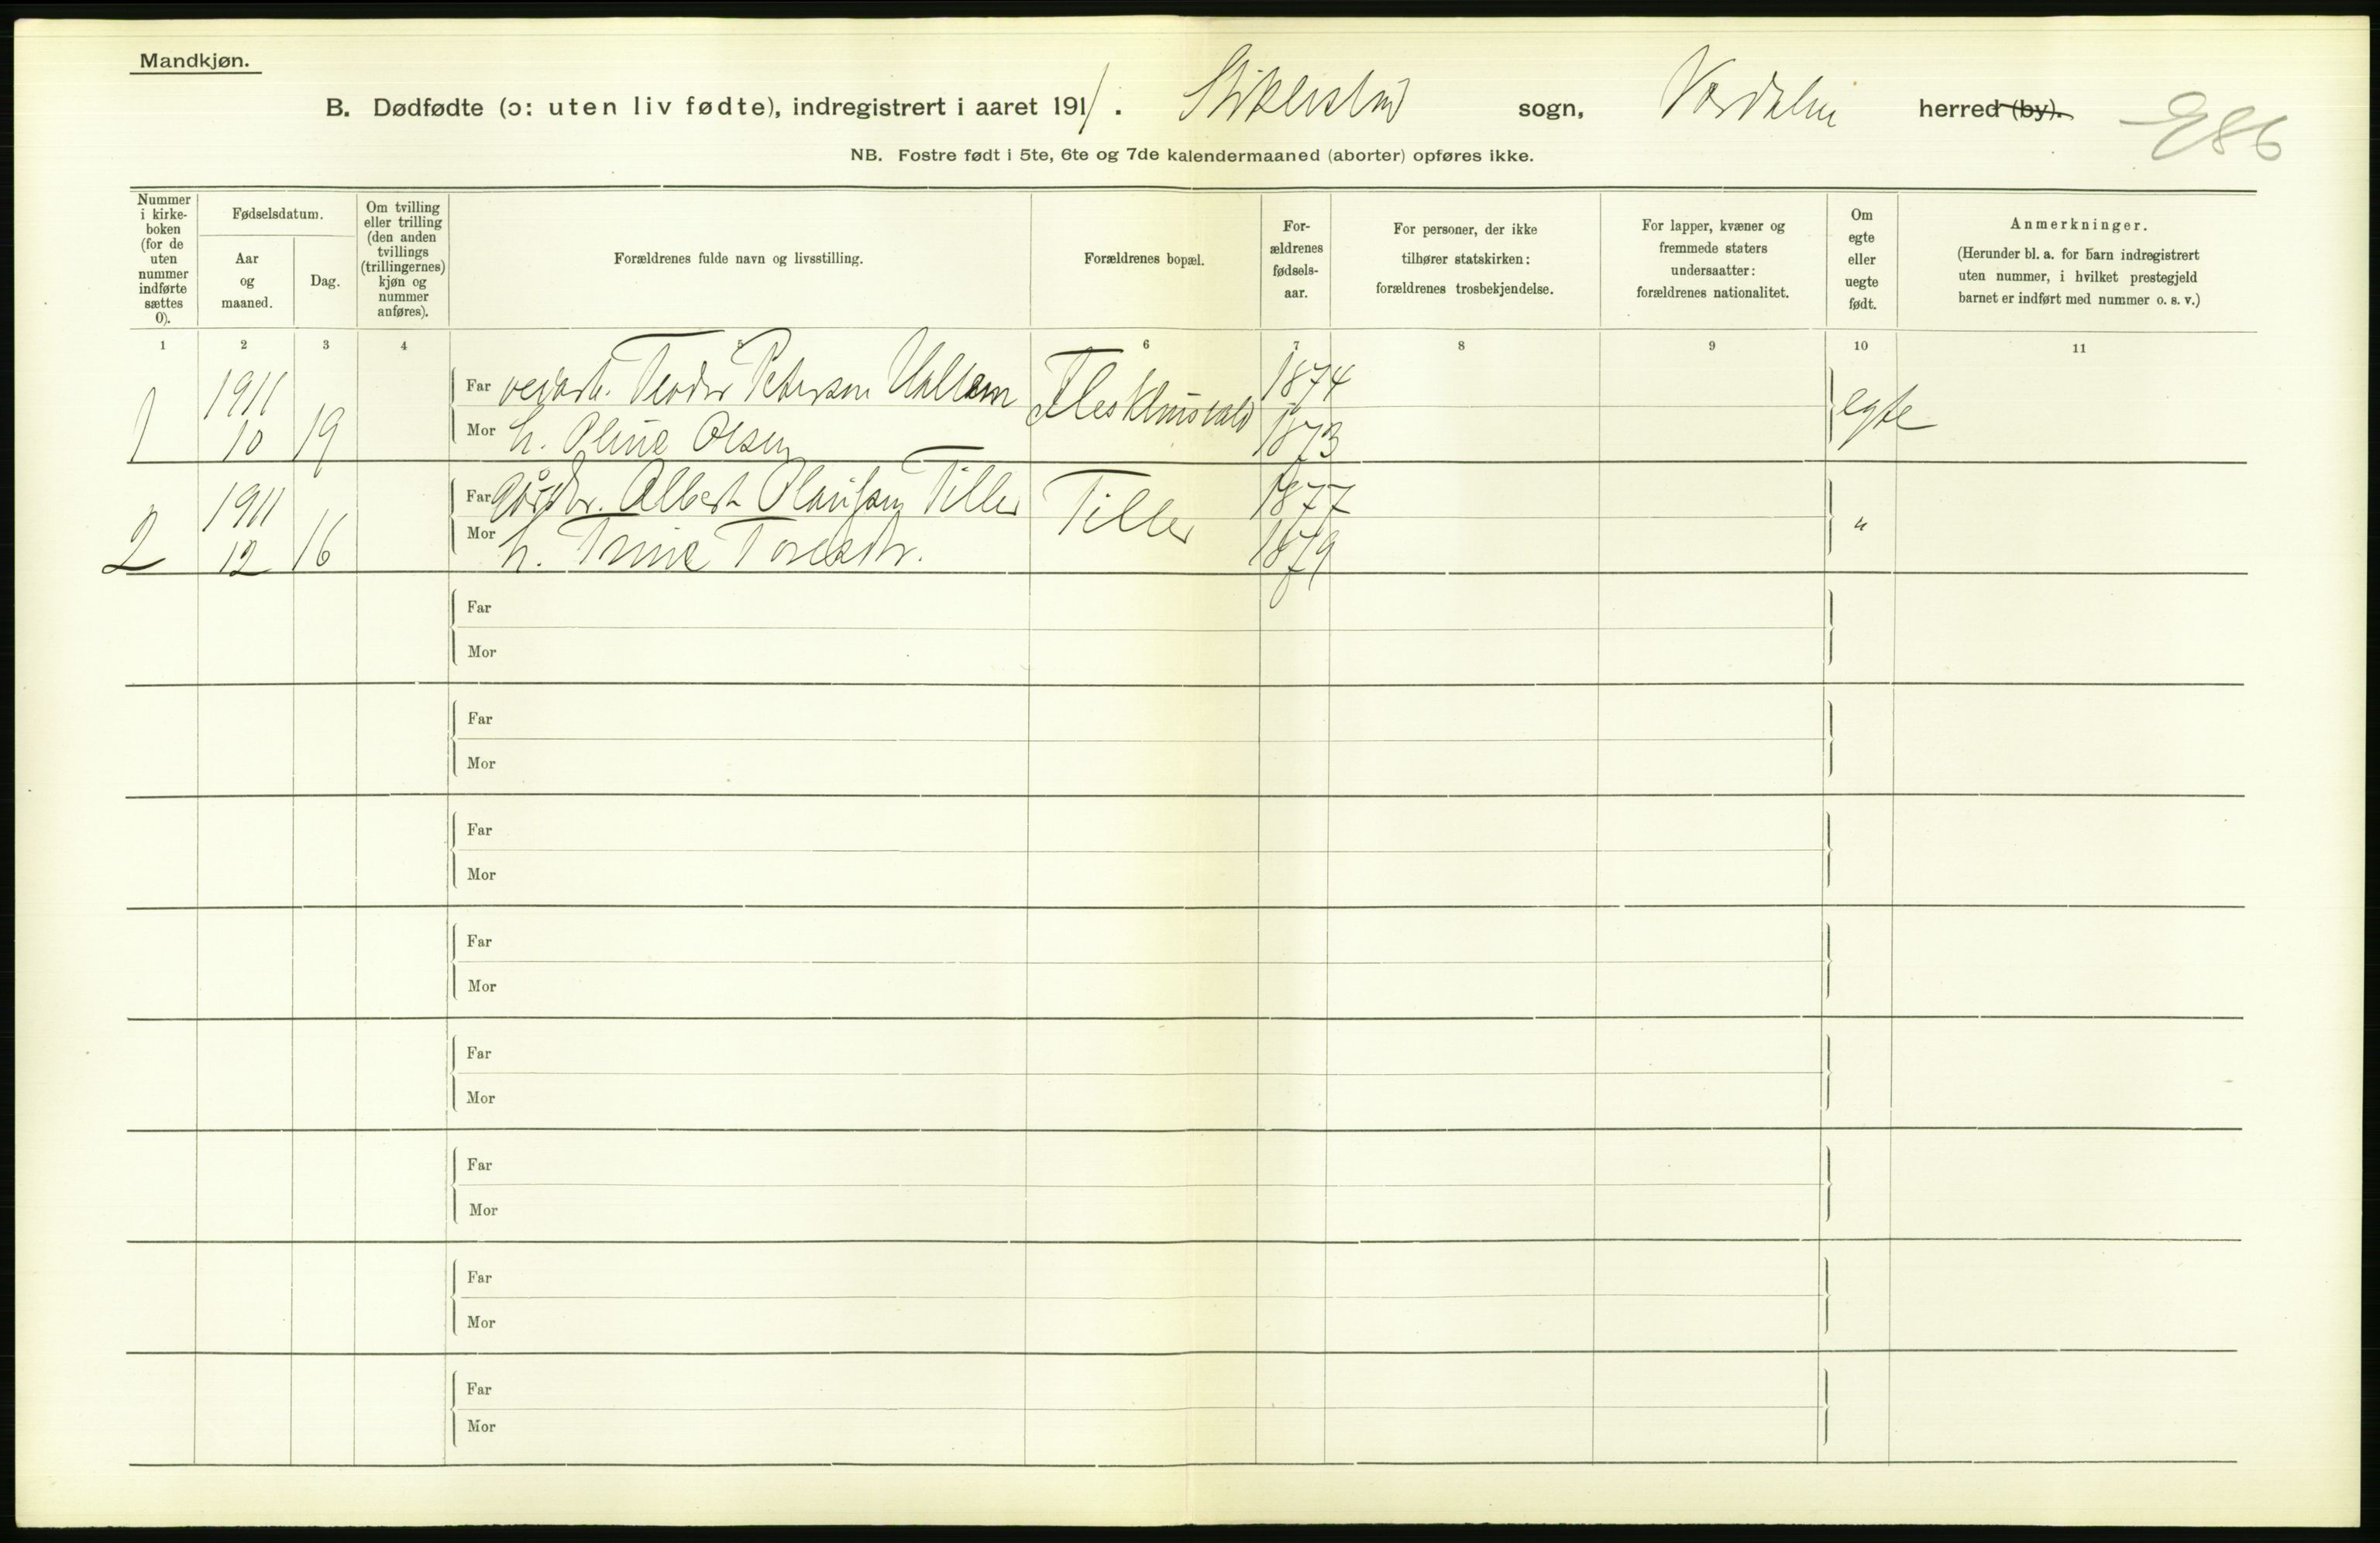 Mandkjøn.
B. Dødfødte (ɔ: uten liv fødte), indregistrert i aaret 1911. Stiklestad sogn, Værdalen herred (by).
E86
NB. Fostre født i 5te, 6te og 7de kalendermaaned (aborter) opføres ikke.
Nummer i kirke-boken (for de uten nummer indførte sættes 0).
Fødselsdatum.
Aar og maaned.
Dag.
Om tvilling eller trilling (den anden tvillings (trillingernes) kjøn og nummer anføres).
Forældrenes fulde navn og livsstilling.
Forældrenes bopæl.
For-ældrenes fødsels-aar.
For personer, der ikke tilhører statskirken: forældrenes trosbekjendelse.
For lapper, kvæner og fremmede staters undersaatter: forældrenes nationalitet.
Om egte eller uegte født.
Anmerkninger.
(Herunder bl. a. for barn indregistrert uten nummer, i hvilket prestegjeld barnet er indført med nummer o. s. v.)
1 2 3 4 5 6 7 8 9 10 11
1 1911 10 19 Far Petersen 1874 egte
Mor h. Oline Olsen 1873
2 1911 12 16 Far Albert Olaussen Tiller Tiller 1877 "
Mor h. Trine 1879
Far
Mor
Far
Mor
Far
Mor
Far
Mor
Far
Mor
Far
Mor
Far
Mor
Far
Mor